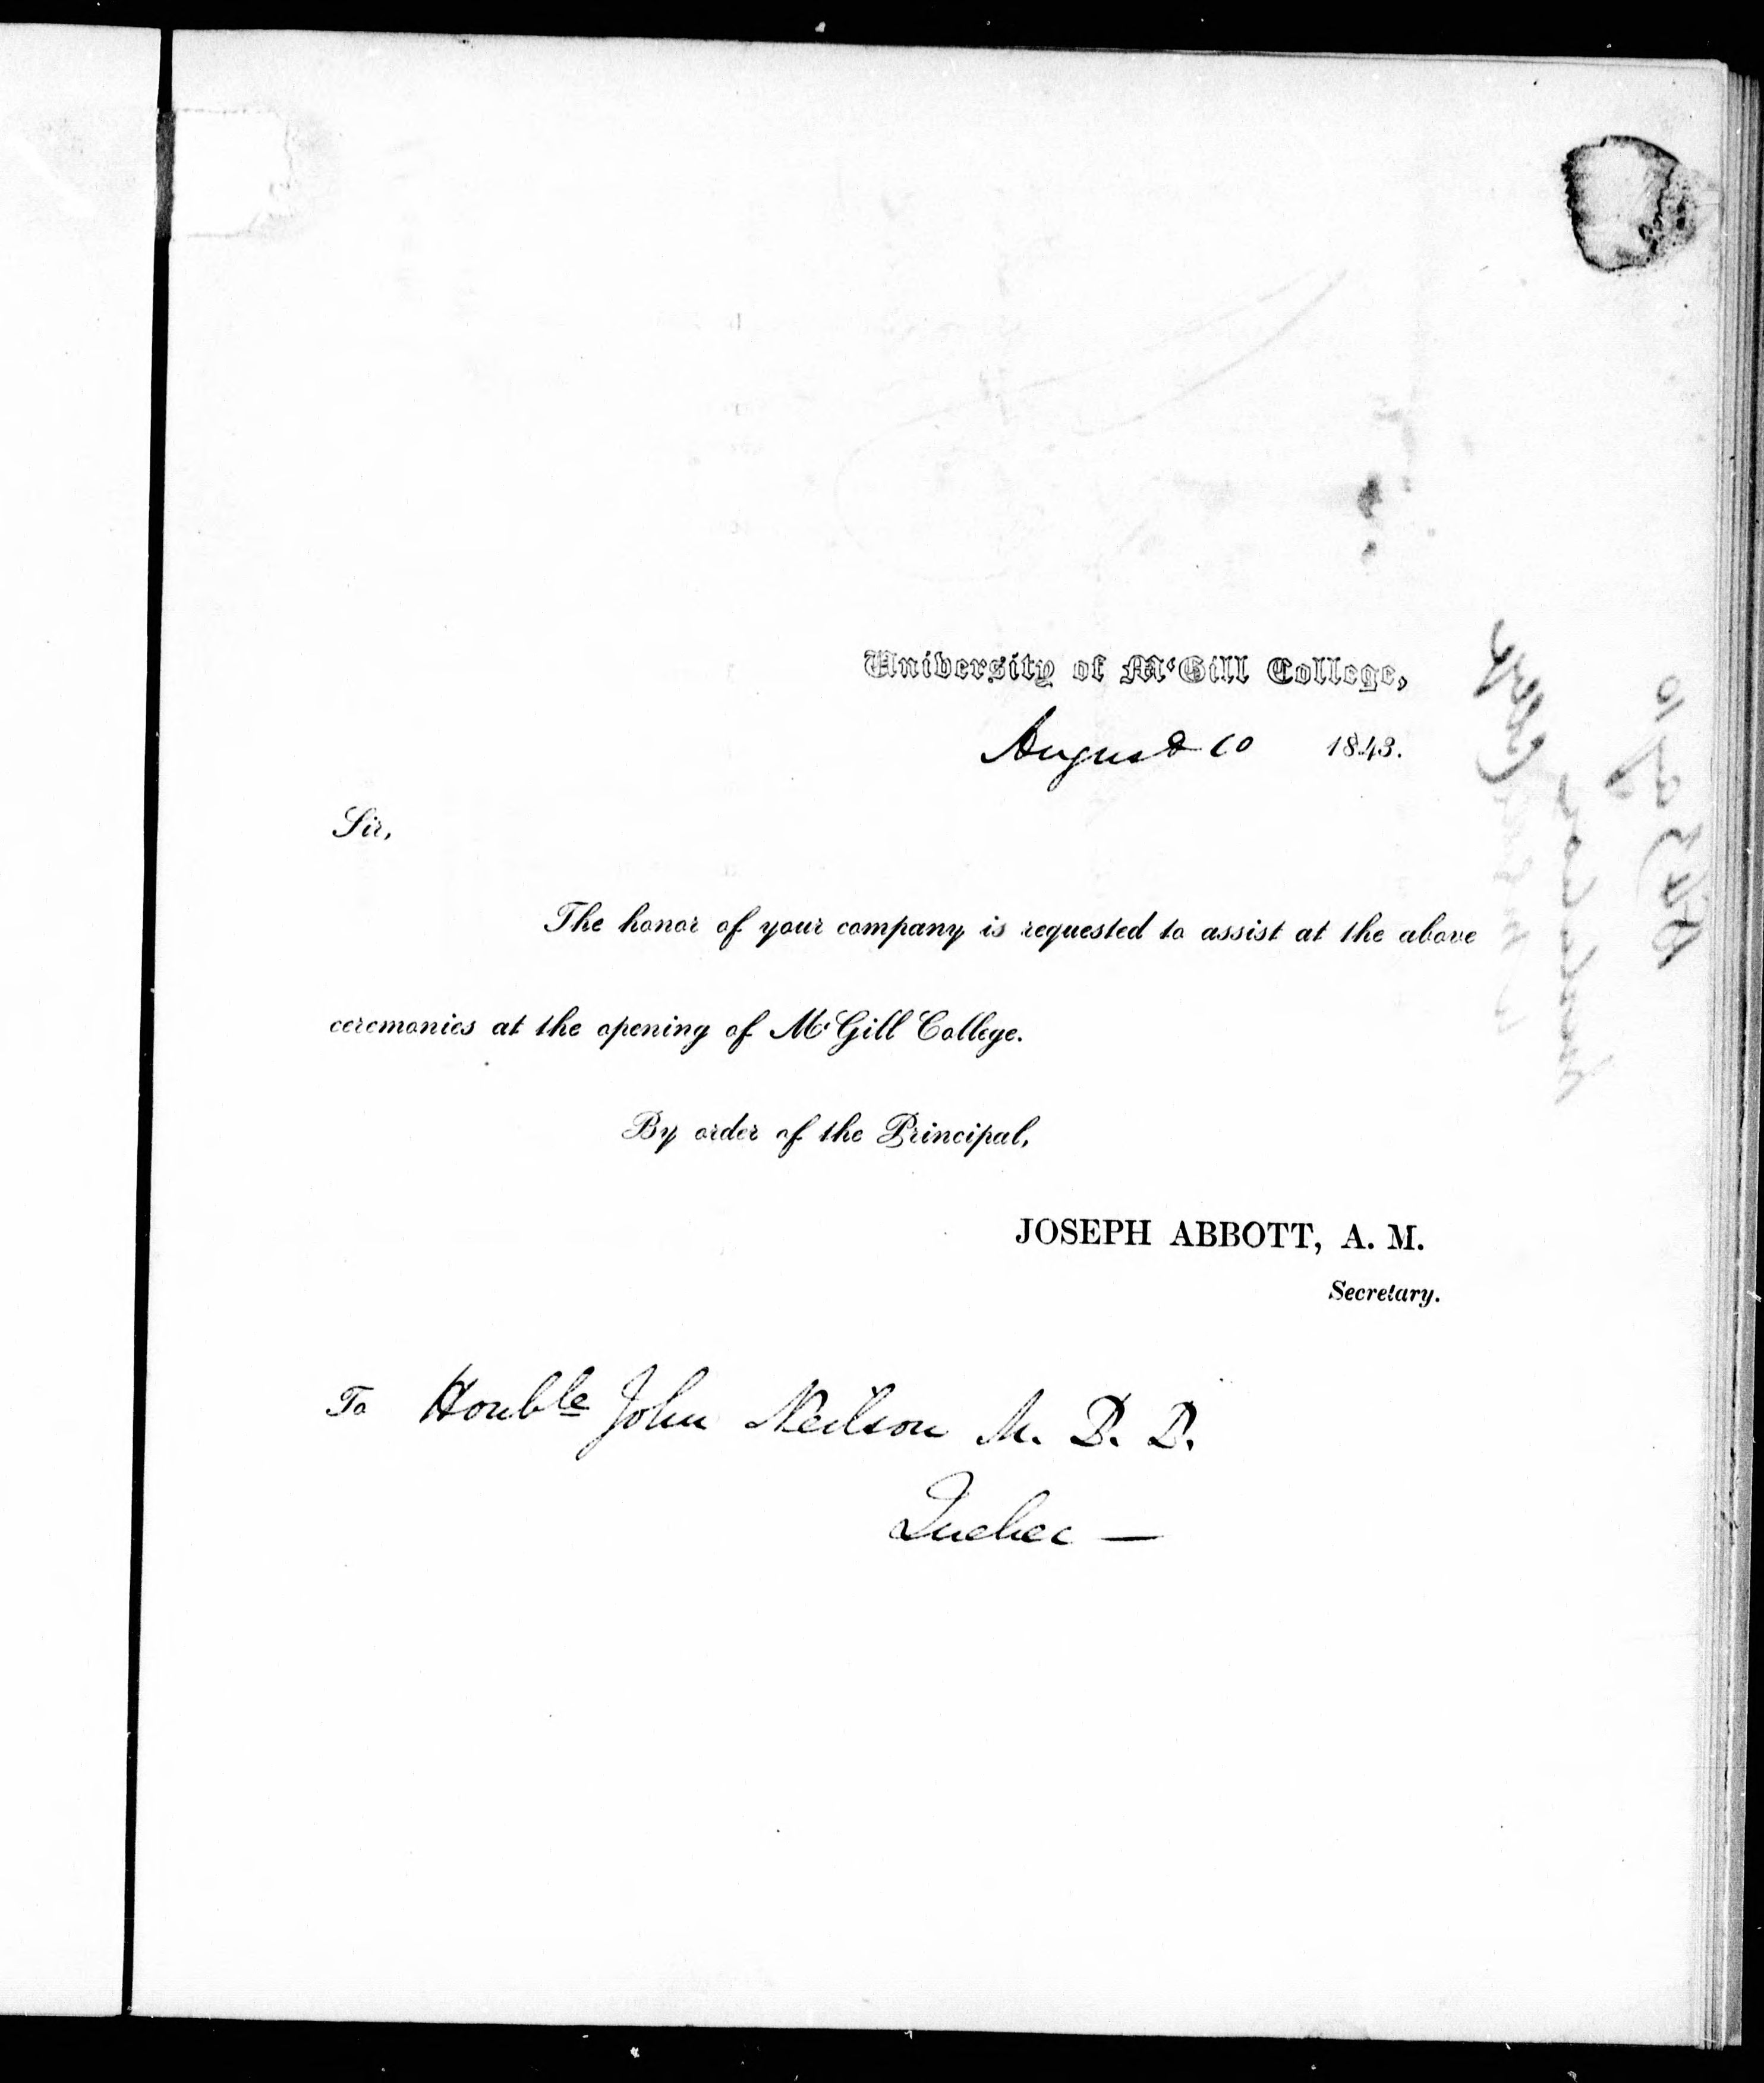 University of M'Gill College,
August 10 1843.
Sir,
The honor of your company is requested to assist at the above
ceremonies at the opening of M'Gill College.
By order of the Principal,
JOSEPH ABBOTT, A. M.
Secretary.
To Honble John Neilson M. P. P.
Quebec —